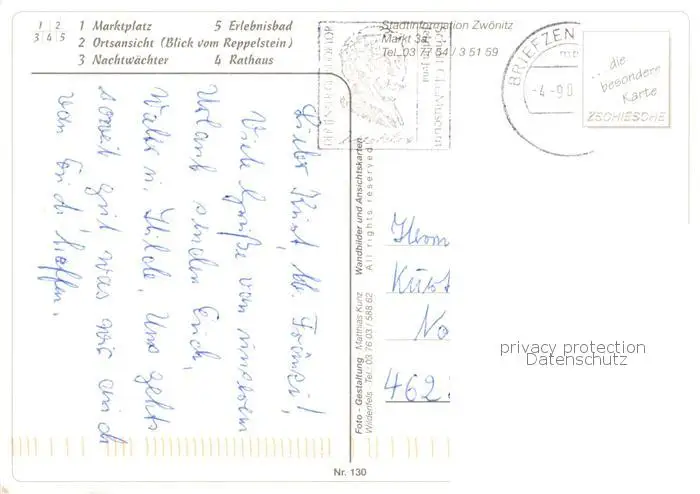 1 2
3 4 5
1 Marktplatz
5 Erlebnisbad
2 Ortsansicht (Blick vom Reppelstein)
3 Nachtwächter
4 Rathaus
Stadtinformation Zwönitz
Markt 3a
Tel. 03 77 54 / 3 51 59
BRIEFZEN
-4.-9 0
... die
besondere
Karte
ZSCHIESCHE
Lieber Kurt, lb. Fränzi!
Viele Grüße von unserem
Urlaub senden Euch,
Walter u. Hilde. Uns gehts
soweit gut, was wir auch
von Euch hoffen.
Wandbilder und Ansichtskarten
All rights reserved
Foto - Gestaltung Matthias Kunz
Wildenfels Tel.: 03 76 03 / 588 62
Herrn
Kurt
No
462
Nr. 130
privacy protection
Datenschutz